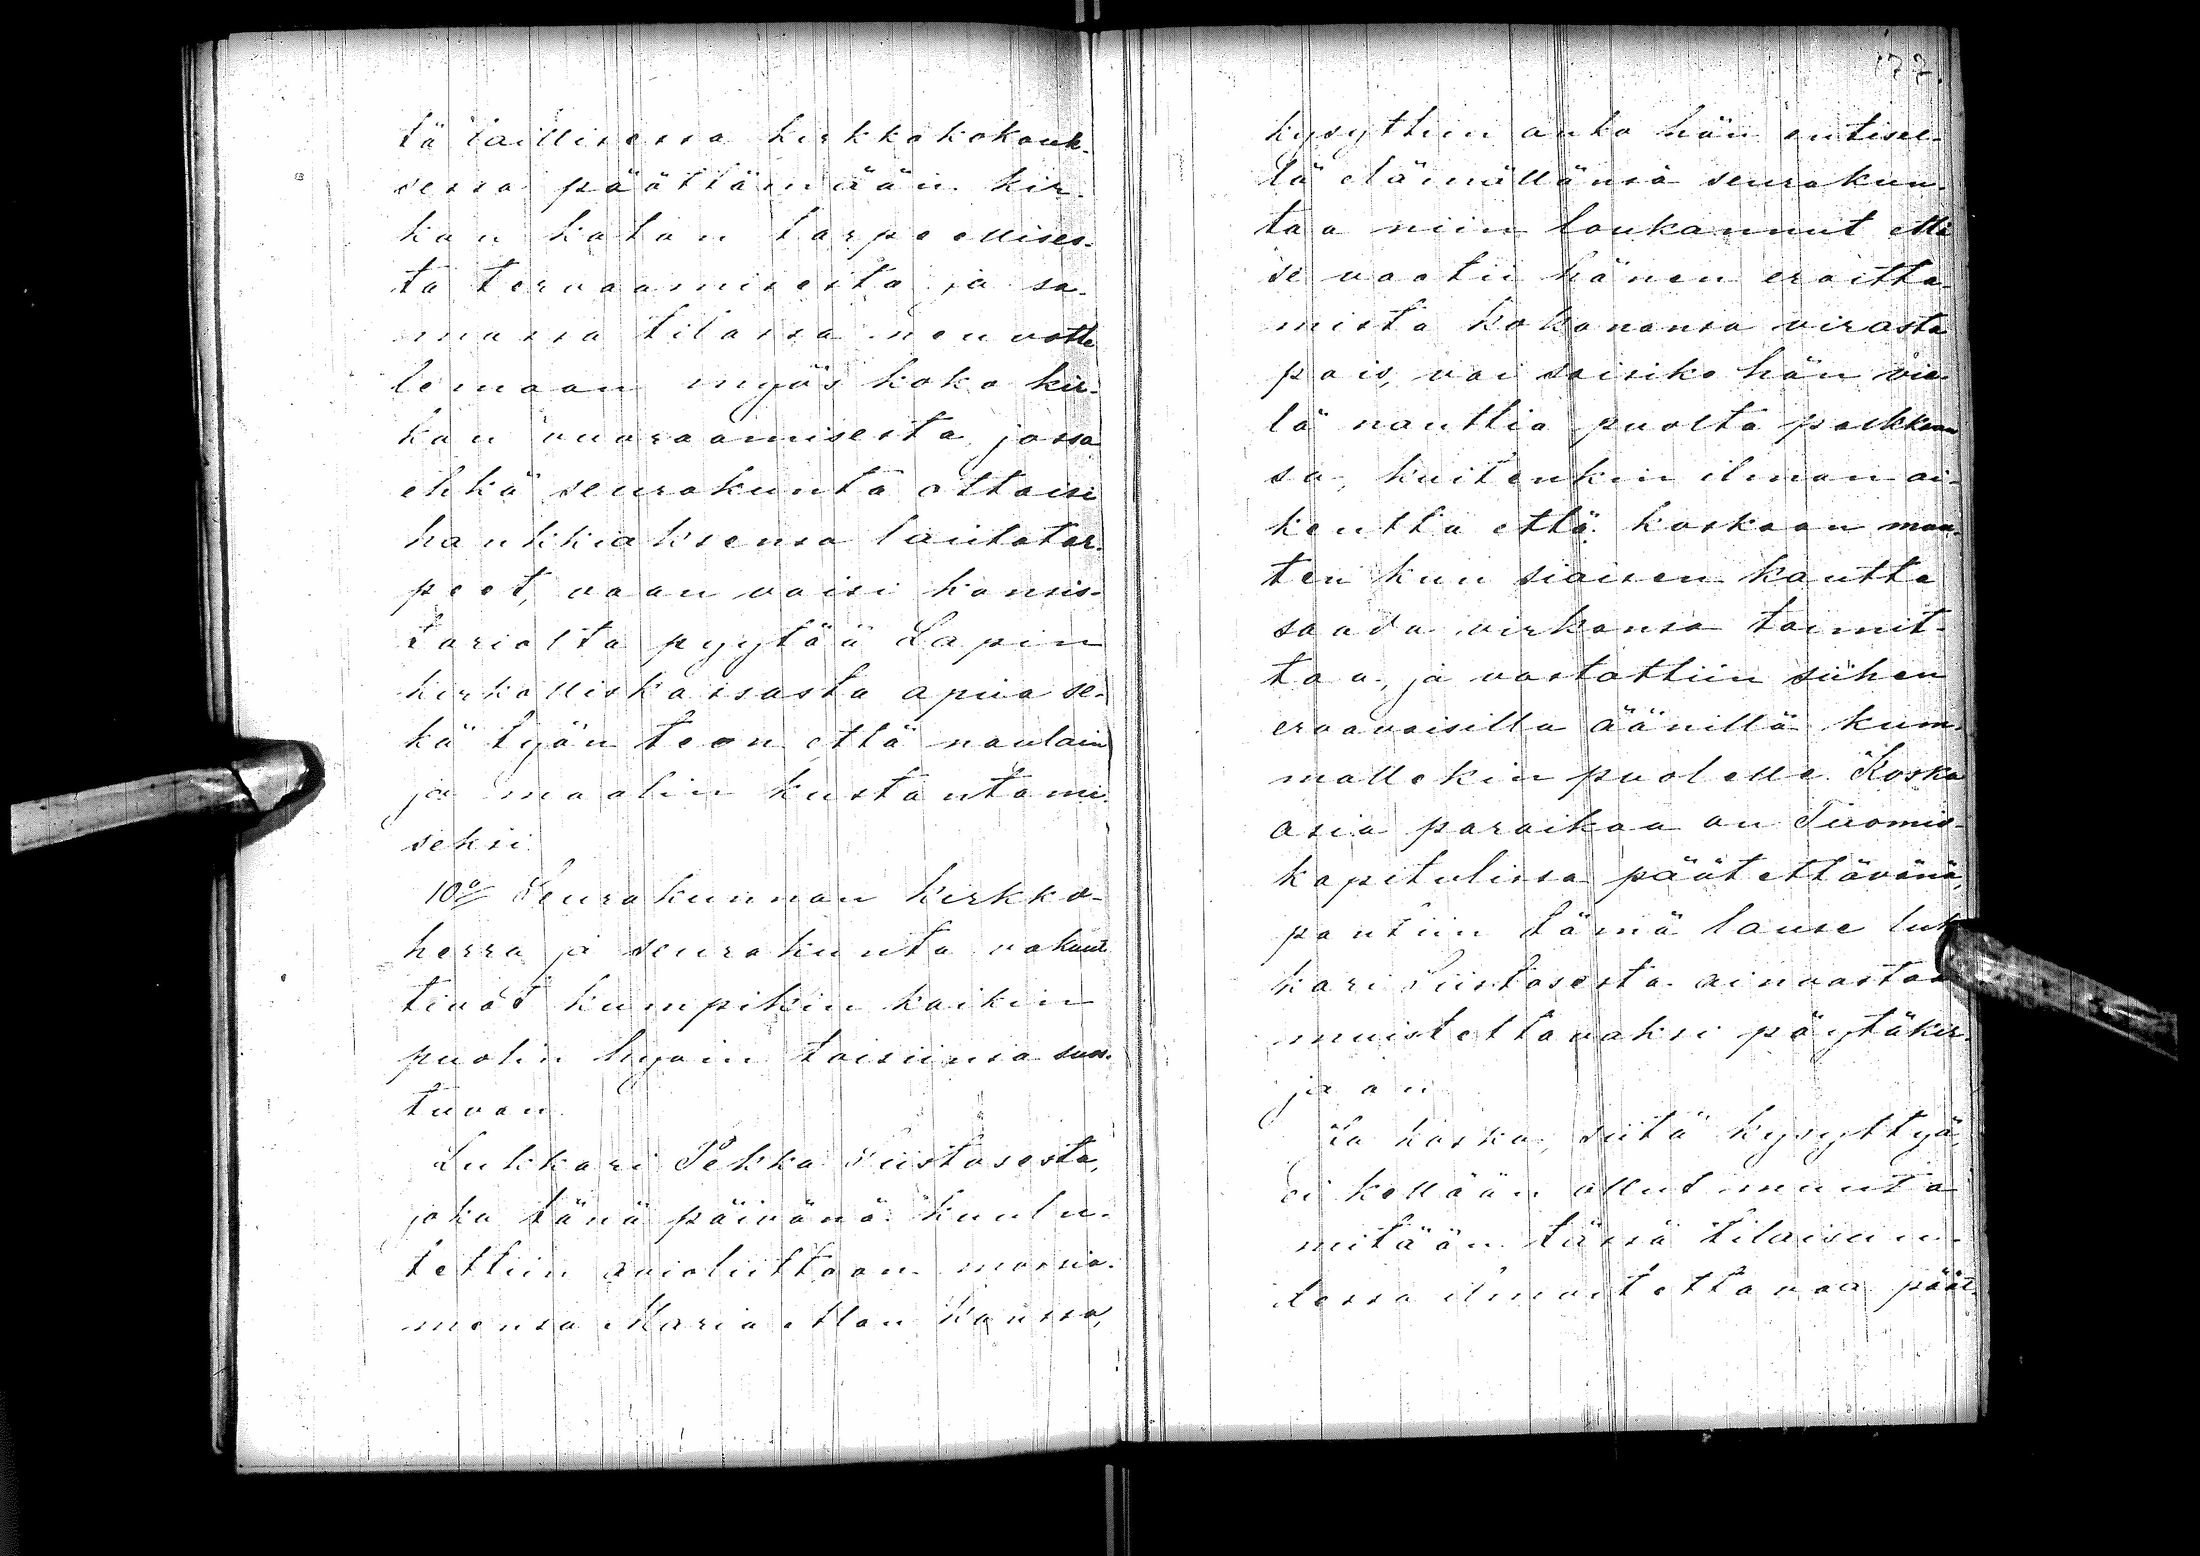 tä laillisessa kirkkokokouk-
sessa päättämään kir-
kon katon tarpeellises-
ta tervaamisesta ja sa-
massa tilassa neuvotte
lemaan myös koko kir-
kon vuoraamisesta, jossa
ehkä seurakunta ottaisi
hankkiaksensa lautatar-
peet, vaan voisi konsis-
toriolta pyytää Lapin
kirkolliskassasta apua se-
kä työn teon että naulain
ja maalin kustantami-
seksi.
10o/ Seurakunnan kirkko-
herra ja seurakunta vakuut
tivat kumpikin kaikin
puolin hyvin toisiinsa suos-
tuvan.
Lukkari Pekka Siistosesta,
joka tänä päivänä kuulu-
tettiin avioliittoon morsia-
mensa Maria Alan kanssa,
177.
kysyttiin onko hän entisel-
lä elämällänsä seurakun-
taa niin loukannut että
se vaatii hänen eroitta-
mista kokonansa virasta
pois, vai saisiko hän vie-
lä nauttia puolta palkkaan
sa, kuitenkin ilman oi-
keutta että koskaan muu-
ten kun siaisen kautta
saada virkansa toimit-
taa, ja vastattiin siihen
eroavaisilla äänillä kum-
mallekin puolelle. Koska
asia paraikaa on Tuomio-
kapitulissa päätettävänä,
pantiin tämä lause luk
kari Siistosesta ainoastaan
muistettavaksi pöytäkir-
jaan.
Ja koska, siitä kysyttyä,
ei kellään ollut muuta
mitään tässä tilaisuu-
dessa ilmoitettavaa päät-